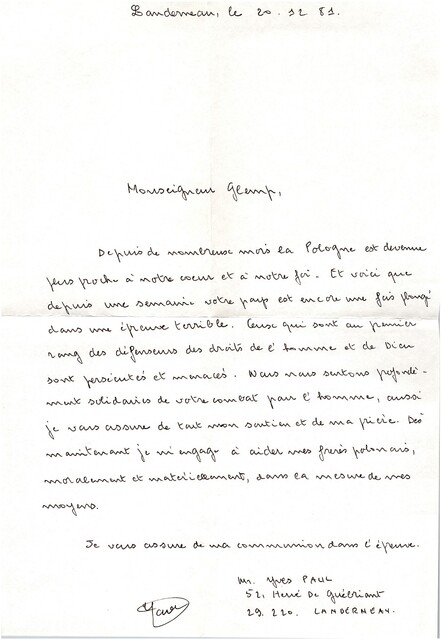 Landerneau, le 20.12 81.
Monseigneur Glemp,
Depuis de nombreuse mois la Pologne est devenue
plus proche à notre coeur et à notre foi. Et voici que
depuis une semaine votre pays est encore une fois plongé
dans une épreuve terrible. Ceux qui sont au premier
rang des défenseurs des droits de l'homme et de Dieu
sont persécutés et menacés. Nous nous sentons profondé-
ment solidaires de votre combat pour l'homme, aussi
je vous assure de tout mon soutien et de ma prière. Dès
maintenant je m'engage à aider mes frères polonais,
moralement et matériellement, dans la mesure de mes
moyens.
Je vous assure de ma communion dans l'épreuve.
Mr. Yves PAUL
52, Hervé De Guébriant
29.220. LANDERNEAU.